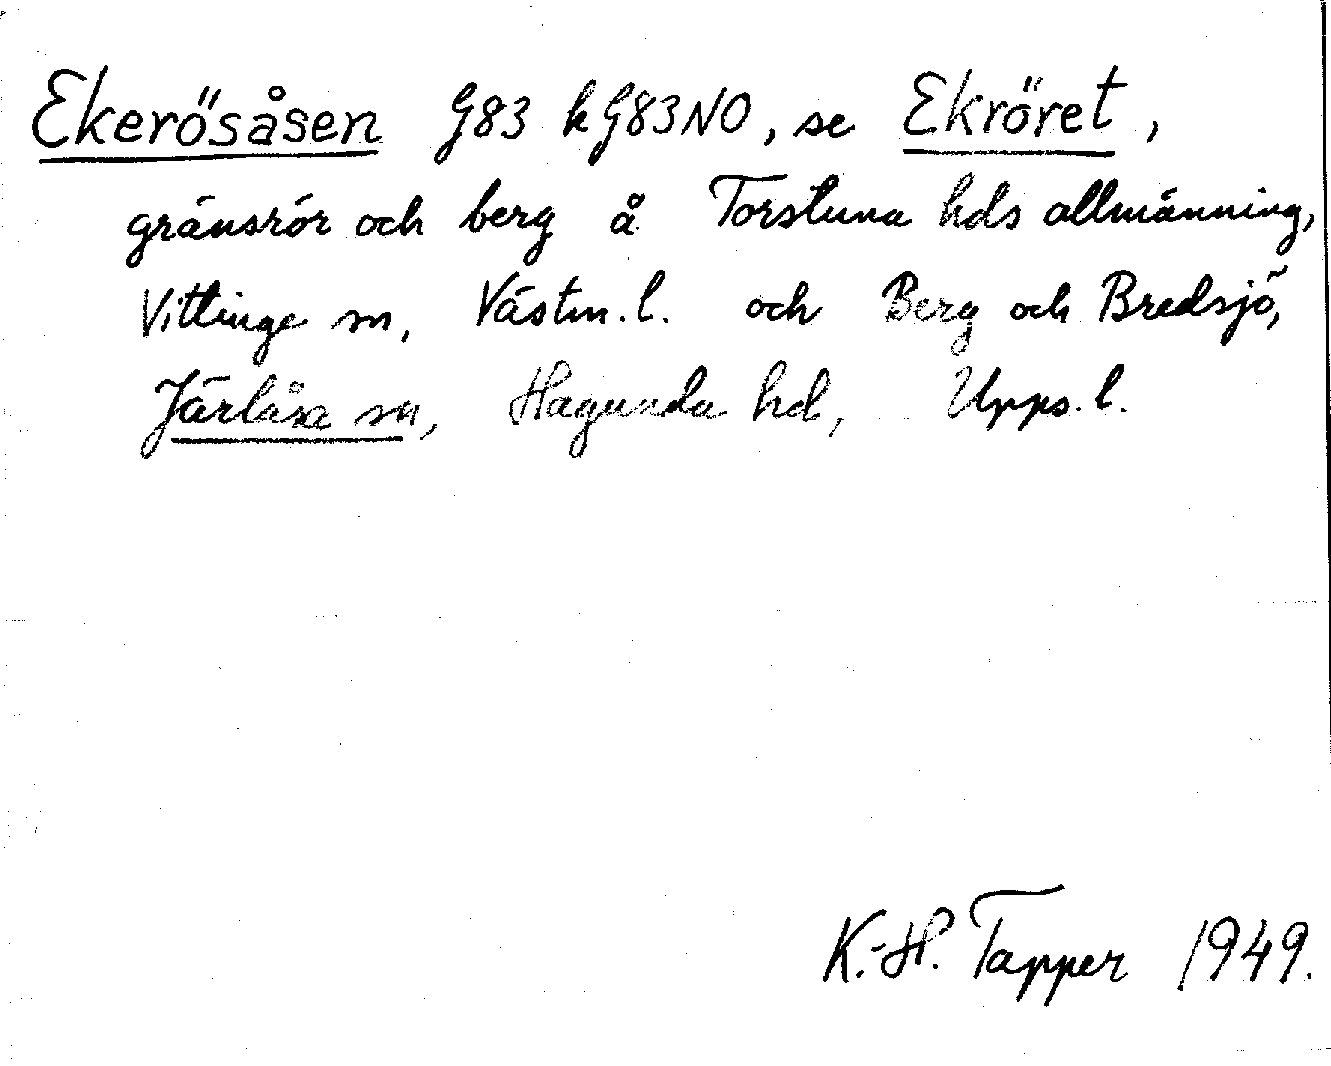 Ekerösåsen G83 k G83NO, se Ekröret,
gränsrör och berg å Torstuna hds allmänning,
Vittinge sn, Västm. l. och Berg och Bredsjö,
Järlåsa sn, Hagunda hd, Upps. l.
K.-H. Tapper 1949.